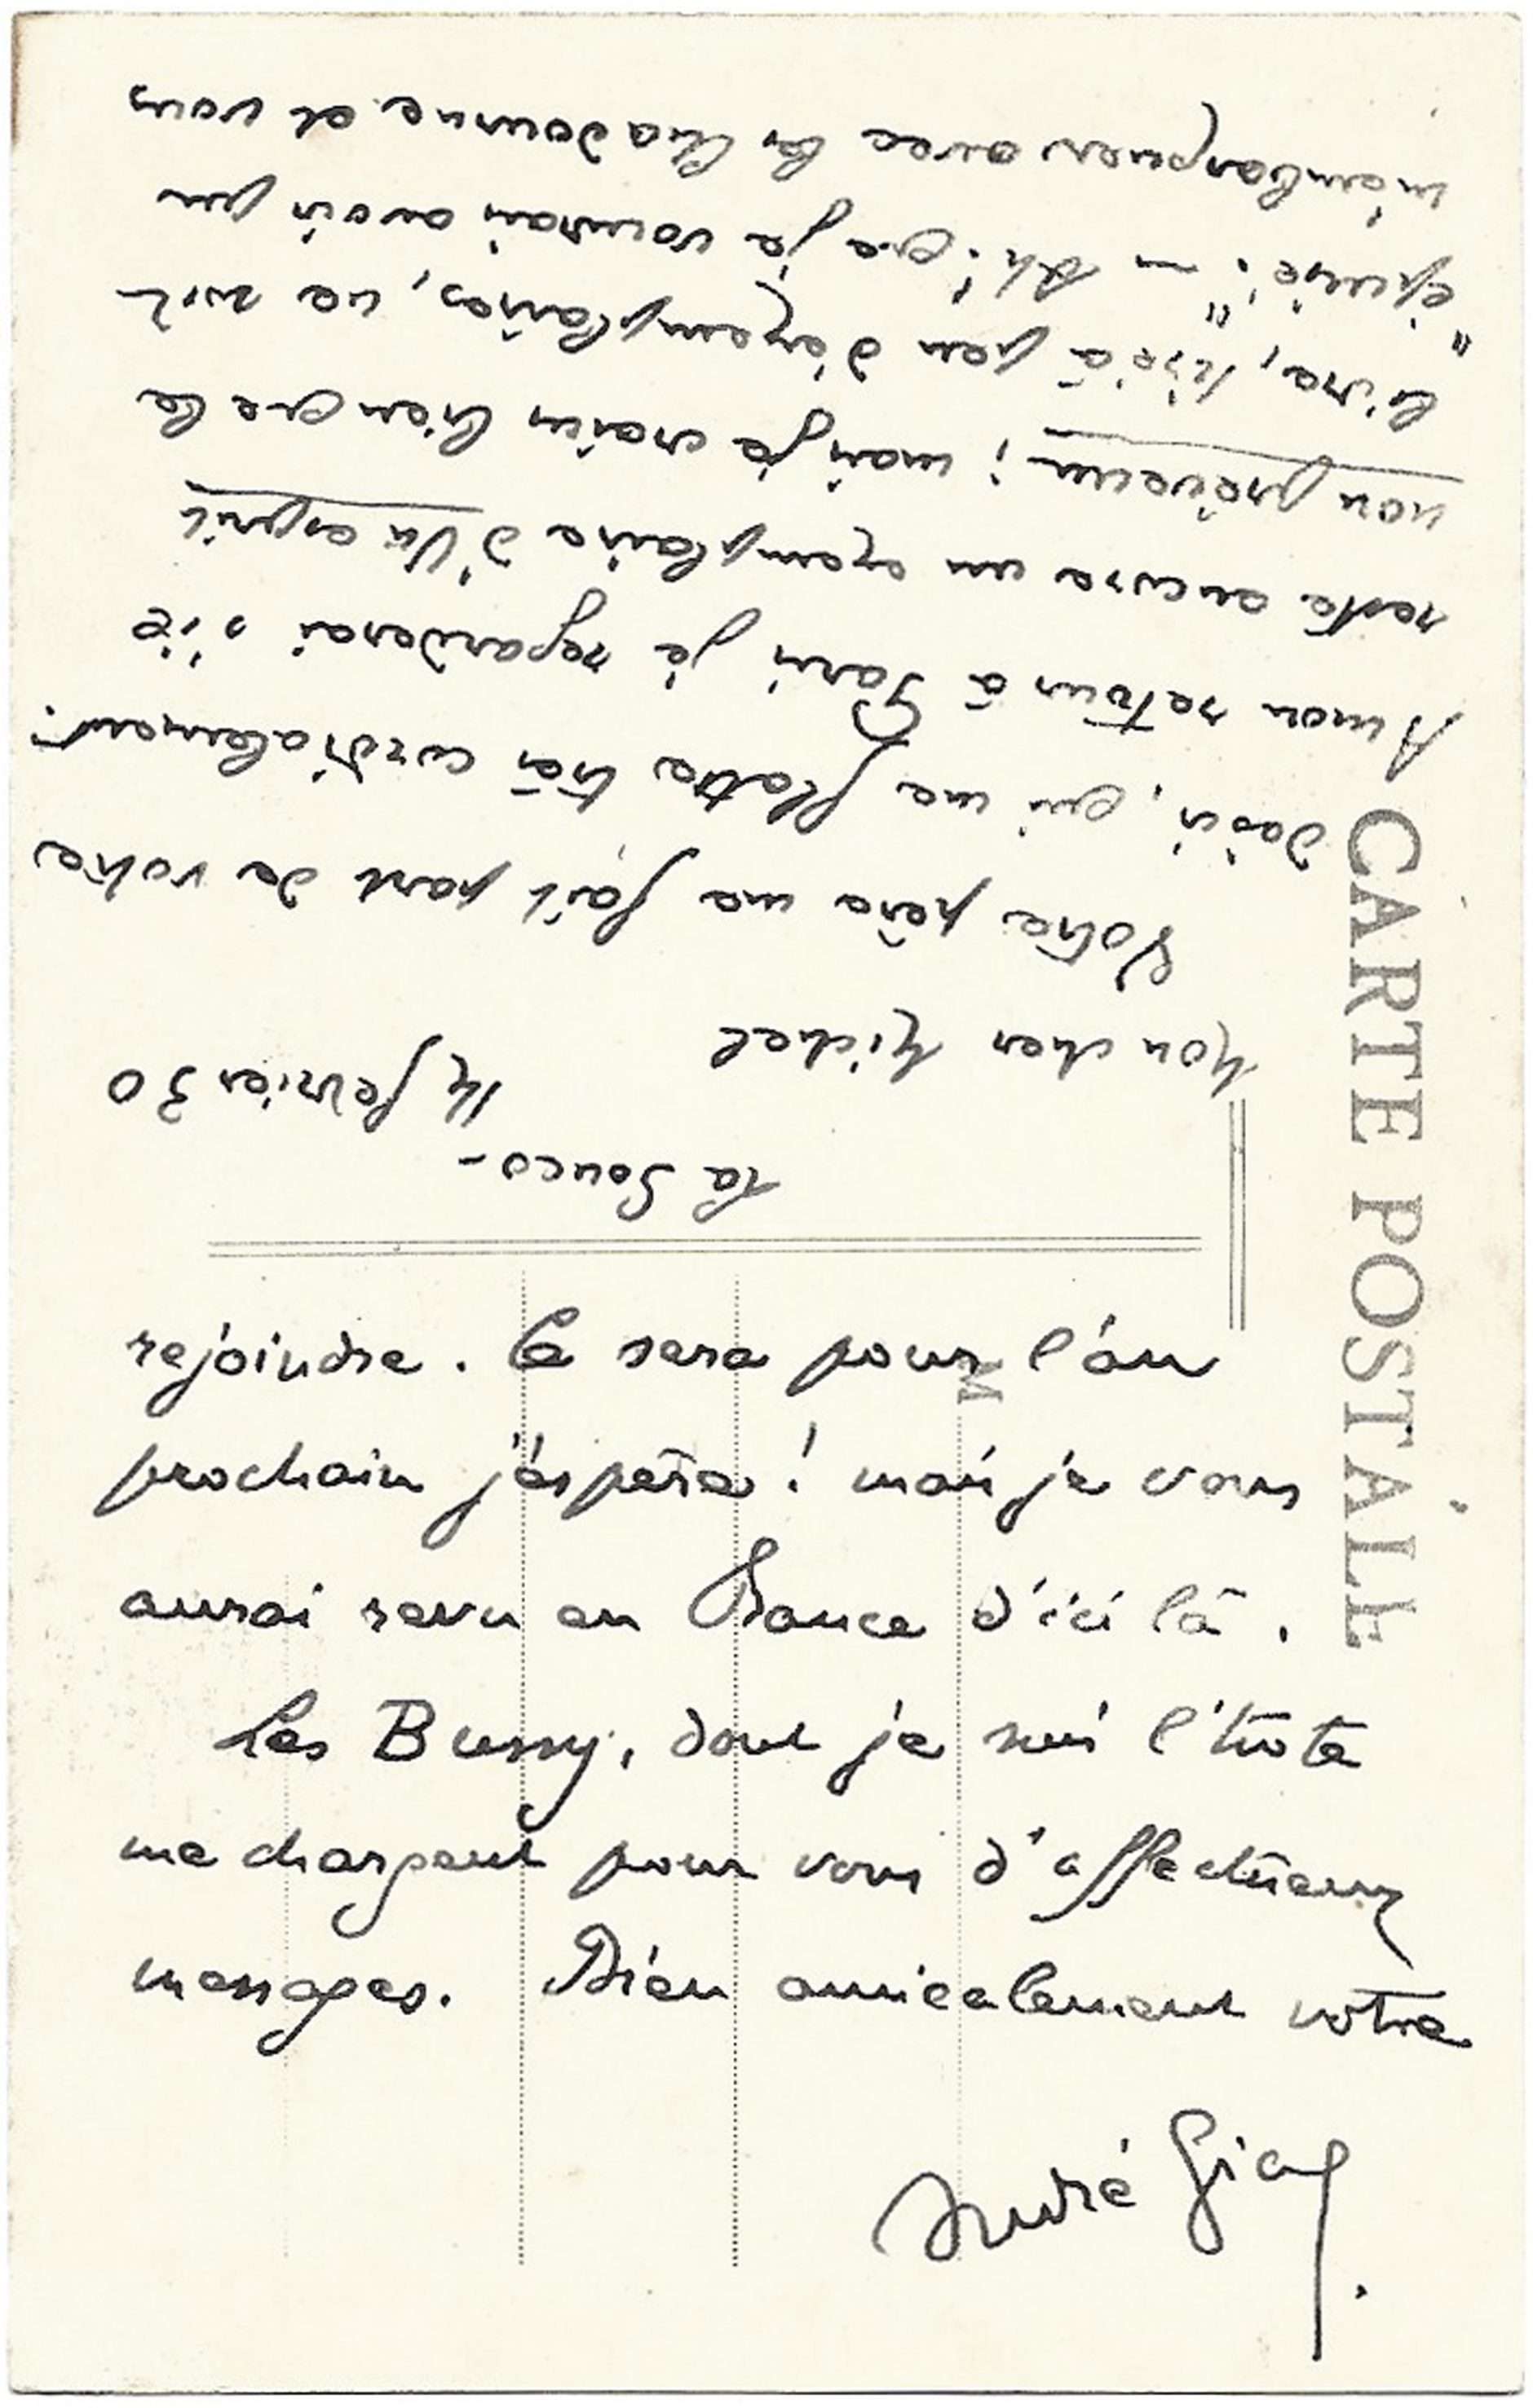 CARTE POSTALE
La Souco -
14 février 30
Mon cher Michel
Votre père me fait part de votre
désir, qui me flatte très cordialement.
A mon retour à Paris je regarderai s'il
reste encore un exemplaire d'Un esprit
non prévenu ; mais je crains bien que le
livre, tiré à peu d'exemplaires, ne soit
"épuisé". — Ah! que je voudrais avoir pu
m'embarquer avec les Chadourne et vous
rejoindre. Ce sera pour l'an
prochain j'espère ! mais je vous
aurai revu en France d'ici là.
Les Bussy, dont je suis l'hôte
me chargent pour vous d'affectueux
messages. Bien amicalement votre
André Gide.
M